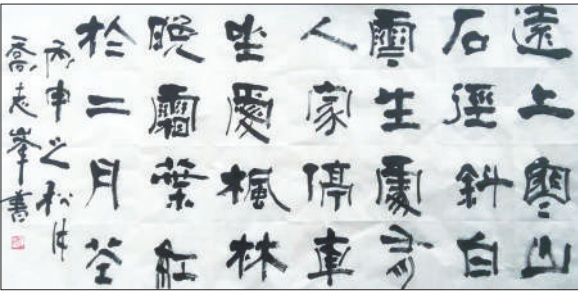 遠上寒山
石徑斜白
雲生處有
人家停車
坐愛楓林
晚霜葉紅
於二月花
丙申之
喬志峯書